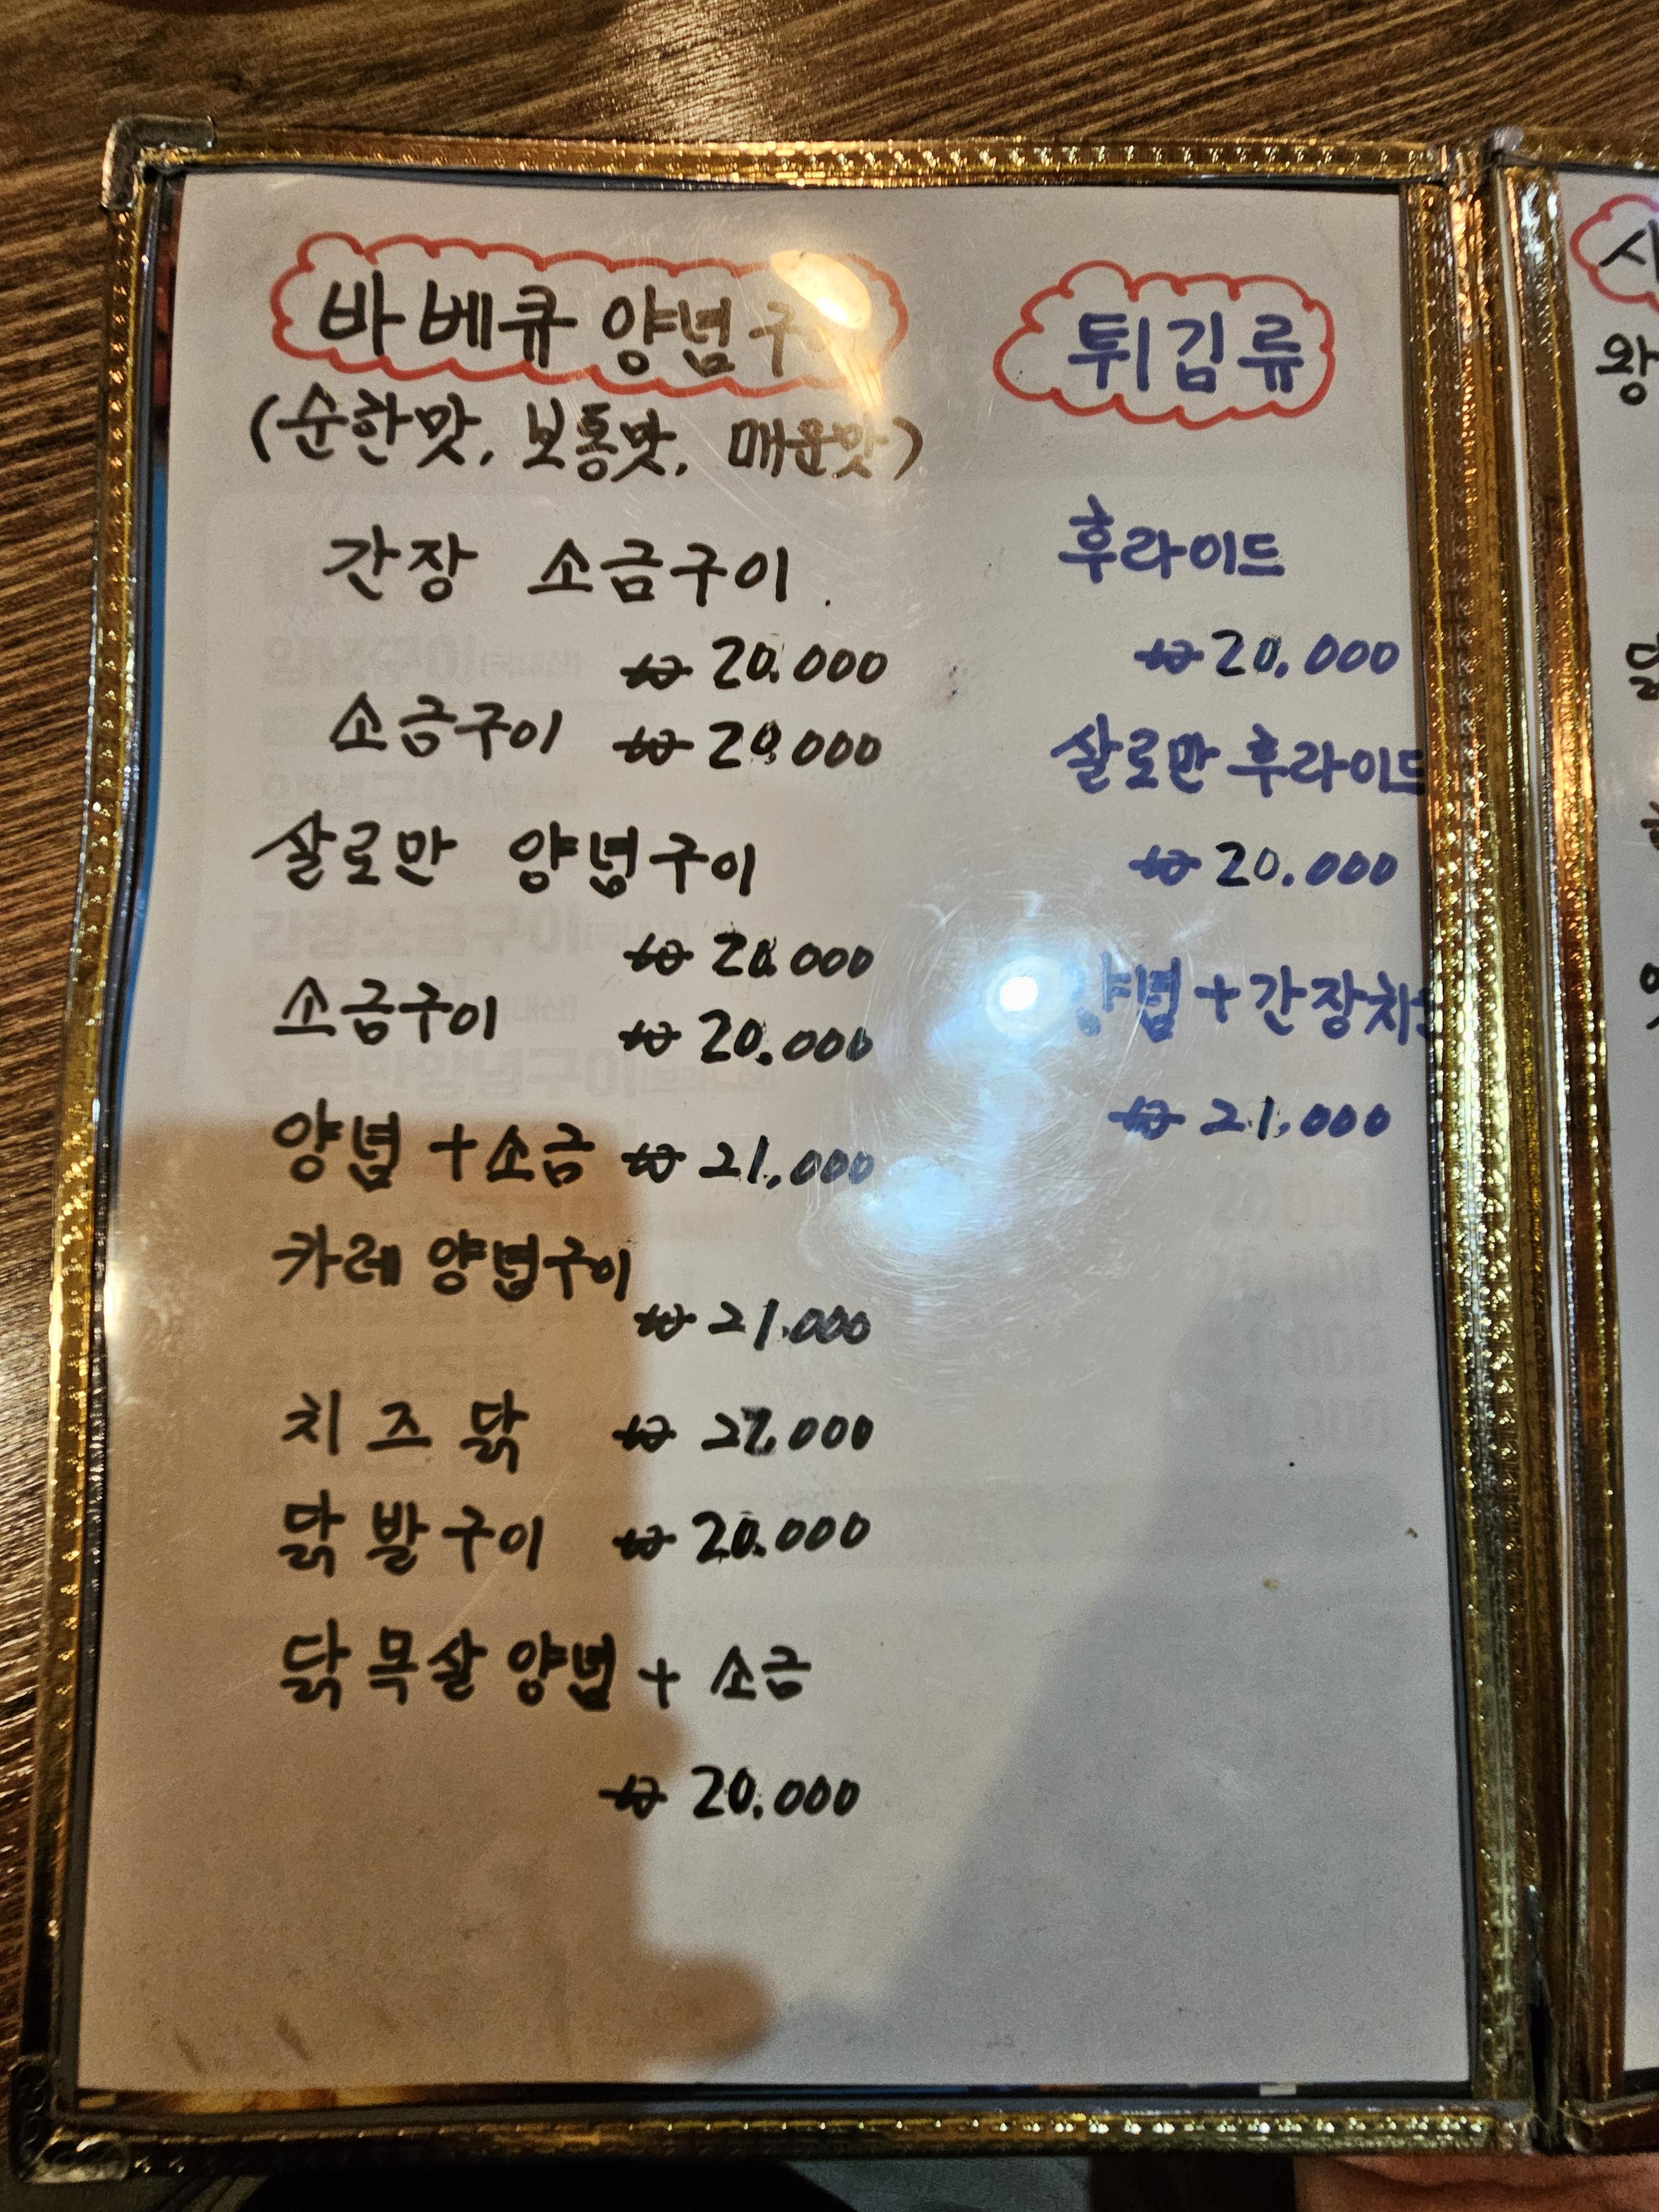 바베큐 양념구이
(순한맛, 보통맛, 매운맛)
간장 소금구이
₩ 20.000
소금구이 ₩ 20.000
살로만 양념구이
₩ 20.000
소금구이 ₩ 20.000
양념 + 소금 ₩ 21.000
카레 양념구이
₩ 21.000
치즈닭 ₩ 22.000
닭발구이 ₩ 20.000
닭목살 양념 + 소금
₩ 20.000
튀김류
후라이드
₩ 20.000
살로만 후라이드
₩ 20.000
양념 + 간장치킨
₩ 21.000
왕